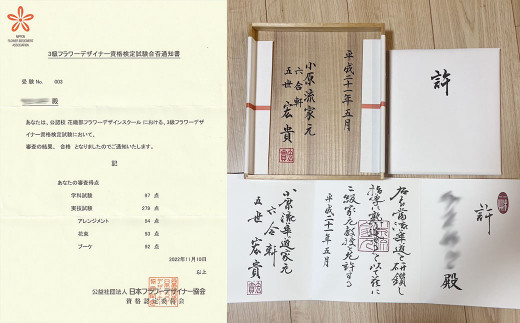 NIPPON
FLOWER DESIGNERS'
ASSOCIATION
3級フラワーデザイナー資格検定試験合否通知書
受験No. 003
殿
あなたは、公認校 花織部フラワーデザインスクール における、3級フラワーデザ
イナー資格検定試験において、
審査の結果、 合格 となりましたのでご通知いたします。
記
あなたの審査得点
学科試験 97 点
実技試験 279 点
アレンジメント 94 点
花束 93 点
ブーケ 92 点
2022年11月10日
以上
公益社団法人 日本フラワーデザイナー協会
資格認定委員会
平成二十一年五月
小原流家元
六合軒
五世 宏貴
許
許
殿
指導
二級家元教授を允許する
平成二十一年五月
小原流華道家元
六合軒
五世 宏貴